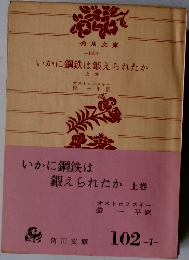 角川文庫
いかに鋼鉄は鍛えられたか
上巻
オストロフスキー
一平訳
いかに鋼鉄は
鍛えられたか 上巻
オストロフスキー
一平訳
角川文庫
102-1-